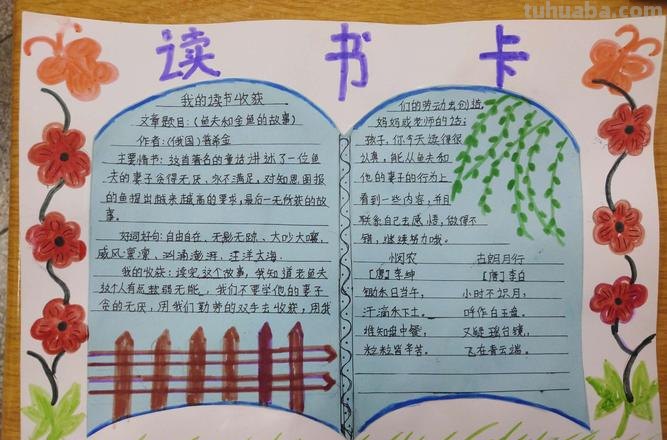 tuhuaba.com
读书卡
我的读书收获
文章题目：（渔夫和金鱼的故事）
作者：（俄国）普希金
主要情书：这首著名的童话讲述了一位鱼
夫的妻子贪得无厌、永不满足，对知恩图报
的鱼提出越来越高的要求，最后一无所获的故
事。
好词好句：自由自在、无影无踪、大吵大嚷，
威风凛凛、汹涌澎湃、汪洋大海.
我的收获：读完这个故事，我知道老鱼夫
这个人有点软弱无能，我们不要学他的妻子
贪的无厌，用我们勤劳的双手去收获，用我
们的劳动去创造
妈妈或老师的话：
孩子，你今天读得很
认真，能从鱼夫和
他的妻子的行为上
看到一些内容，并且
联系自己去感悟，做得不
错，继续努力哦。
悯农
[唐]李绅
锄禾日当午，
汗滴禾下土。
谁知盘中餐，
粒粒皆辛苦。
古朗月行
[唐]李白
小时不识月，
呼作白玉盘。
又疑瑶台镜，
飞在青云端。